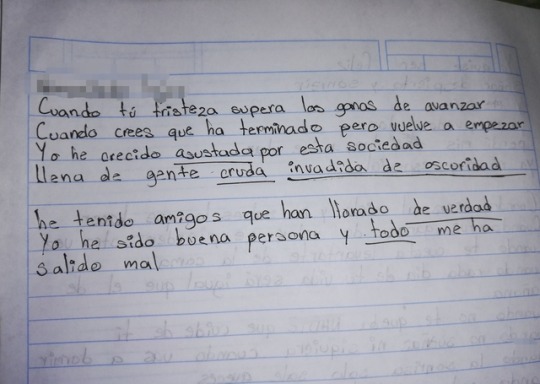 Cuando tú tristeza supera las ganas de avanzar
Cuando crees que ha terminado pero vuelve a empezar
Yo he crecido asustada por esta sociedad
llena de gente cruda invadida de oscoridad
he tenido amigos que han llorado de verdad
Yo he sido buena persona y todo me ha
salido mal